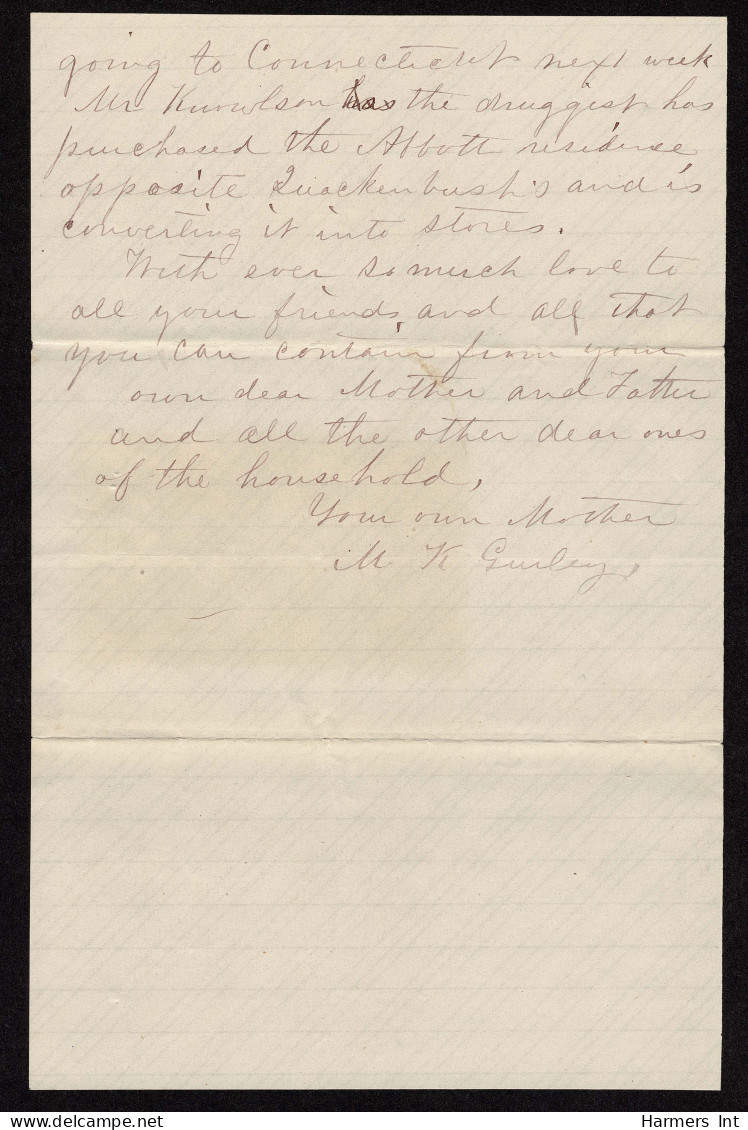 going to Connecticut next week
Mr Knowlson has the druggist has
purchased the Abbott residence
opposite Quackenbush's and is
converting it into stores.
With ever so much love to
all your friends and all that
you can contain from your
own dear Mother and Father
and all the other dear ones
of the household,
Your own Mother
M K Gurley,
Harmers Int